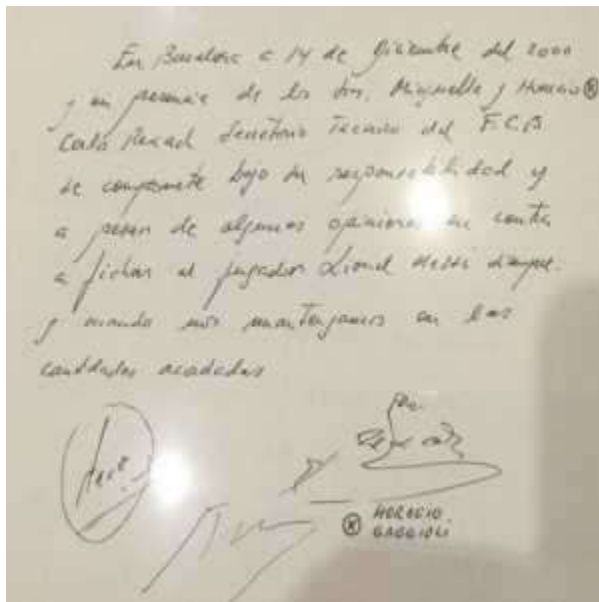 En Barcelona a 14 de Diciembre del 2000
y en presencia de los Srs. Minguella y Horacio ⊗
Carlos Rexach Secretario Técnico del F.C.B.
se compromete bajo su responsabilidad y
a pesar de algunas opiniones en contra
a fichar al jugador Lionel Messi siempre
y cuando nos mantengamos en las
cantidades acordadas
⊗ HORACIO
GAGGIOLI